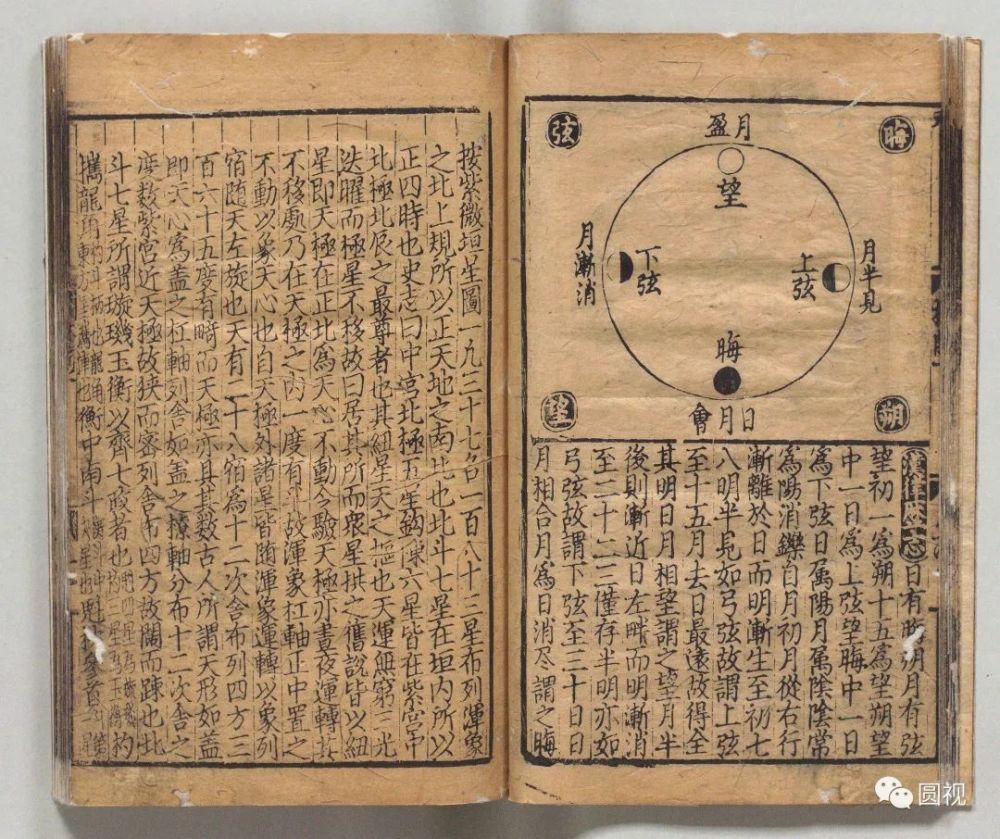 晦
弦
月盈
望
月半見
上弦
下弦
月漸消
晦
日月會
朔
望
漢律曆志日有晦朔月有弦
望初一為朔十五為望朔望
中一日為上弦望晦中一日
為下弦日屬陽月屬陰陰常
為陽消鑠自月初月從右行
漸離於日而明漸生至初七
八明半見如弓弦故謂上弦
至十五月去日最遠故得全
其明日月相望謂之望月半
後則漸近日左畔而明漸消
至二十二三僅存半明亦如
弓弦故謂下弦至三十日日
月相合月為日消尽謂之晦
按紫微垣星圖一九三十七名一百八十三星布列渾象
之北上規所以正天地之南北也北斗七星在垣内所以
正四時也史志曰中宮北極五星鈎陳六星皆在紫宮中
北極北辰之最尊者也其紐星天之樞也天運無窮三光
迭曜而極星不移故曰居其所而衆星拱之舊說皆以紐
星即天極在正北為天心不動今驗天極亦晝夜運轉其
不移處乃在天極之内一度有半故渾象杠軸正中置之
不動以象天心也自天極外諸星皆随渾象運轉以象列
宿随天左旋也天有二十八宿為十二次舍布列四方三
百六十五度有畸而天極亦具其数古人所謂天形如盖
即天心為盖之杠軸列舍如盖之橑軸分布十二次舍之
度数紫宮近天極故狭而密列舍布四方故闊而踈也北
斗七星所謂璇璣玉衡以齊七政者也杓
攜龍角衡中南斗魁枕參首
圆视